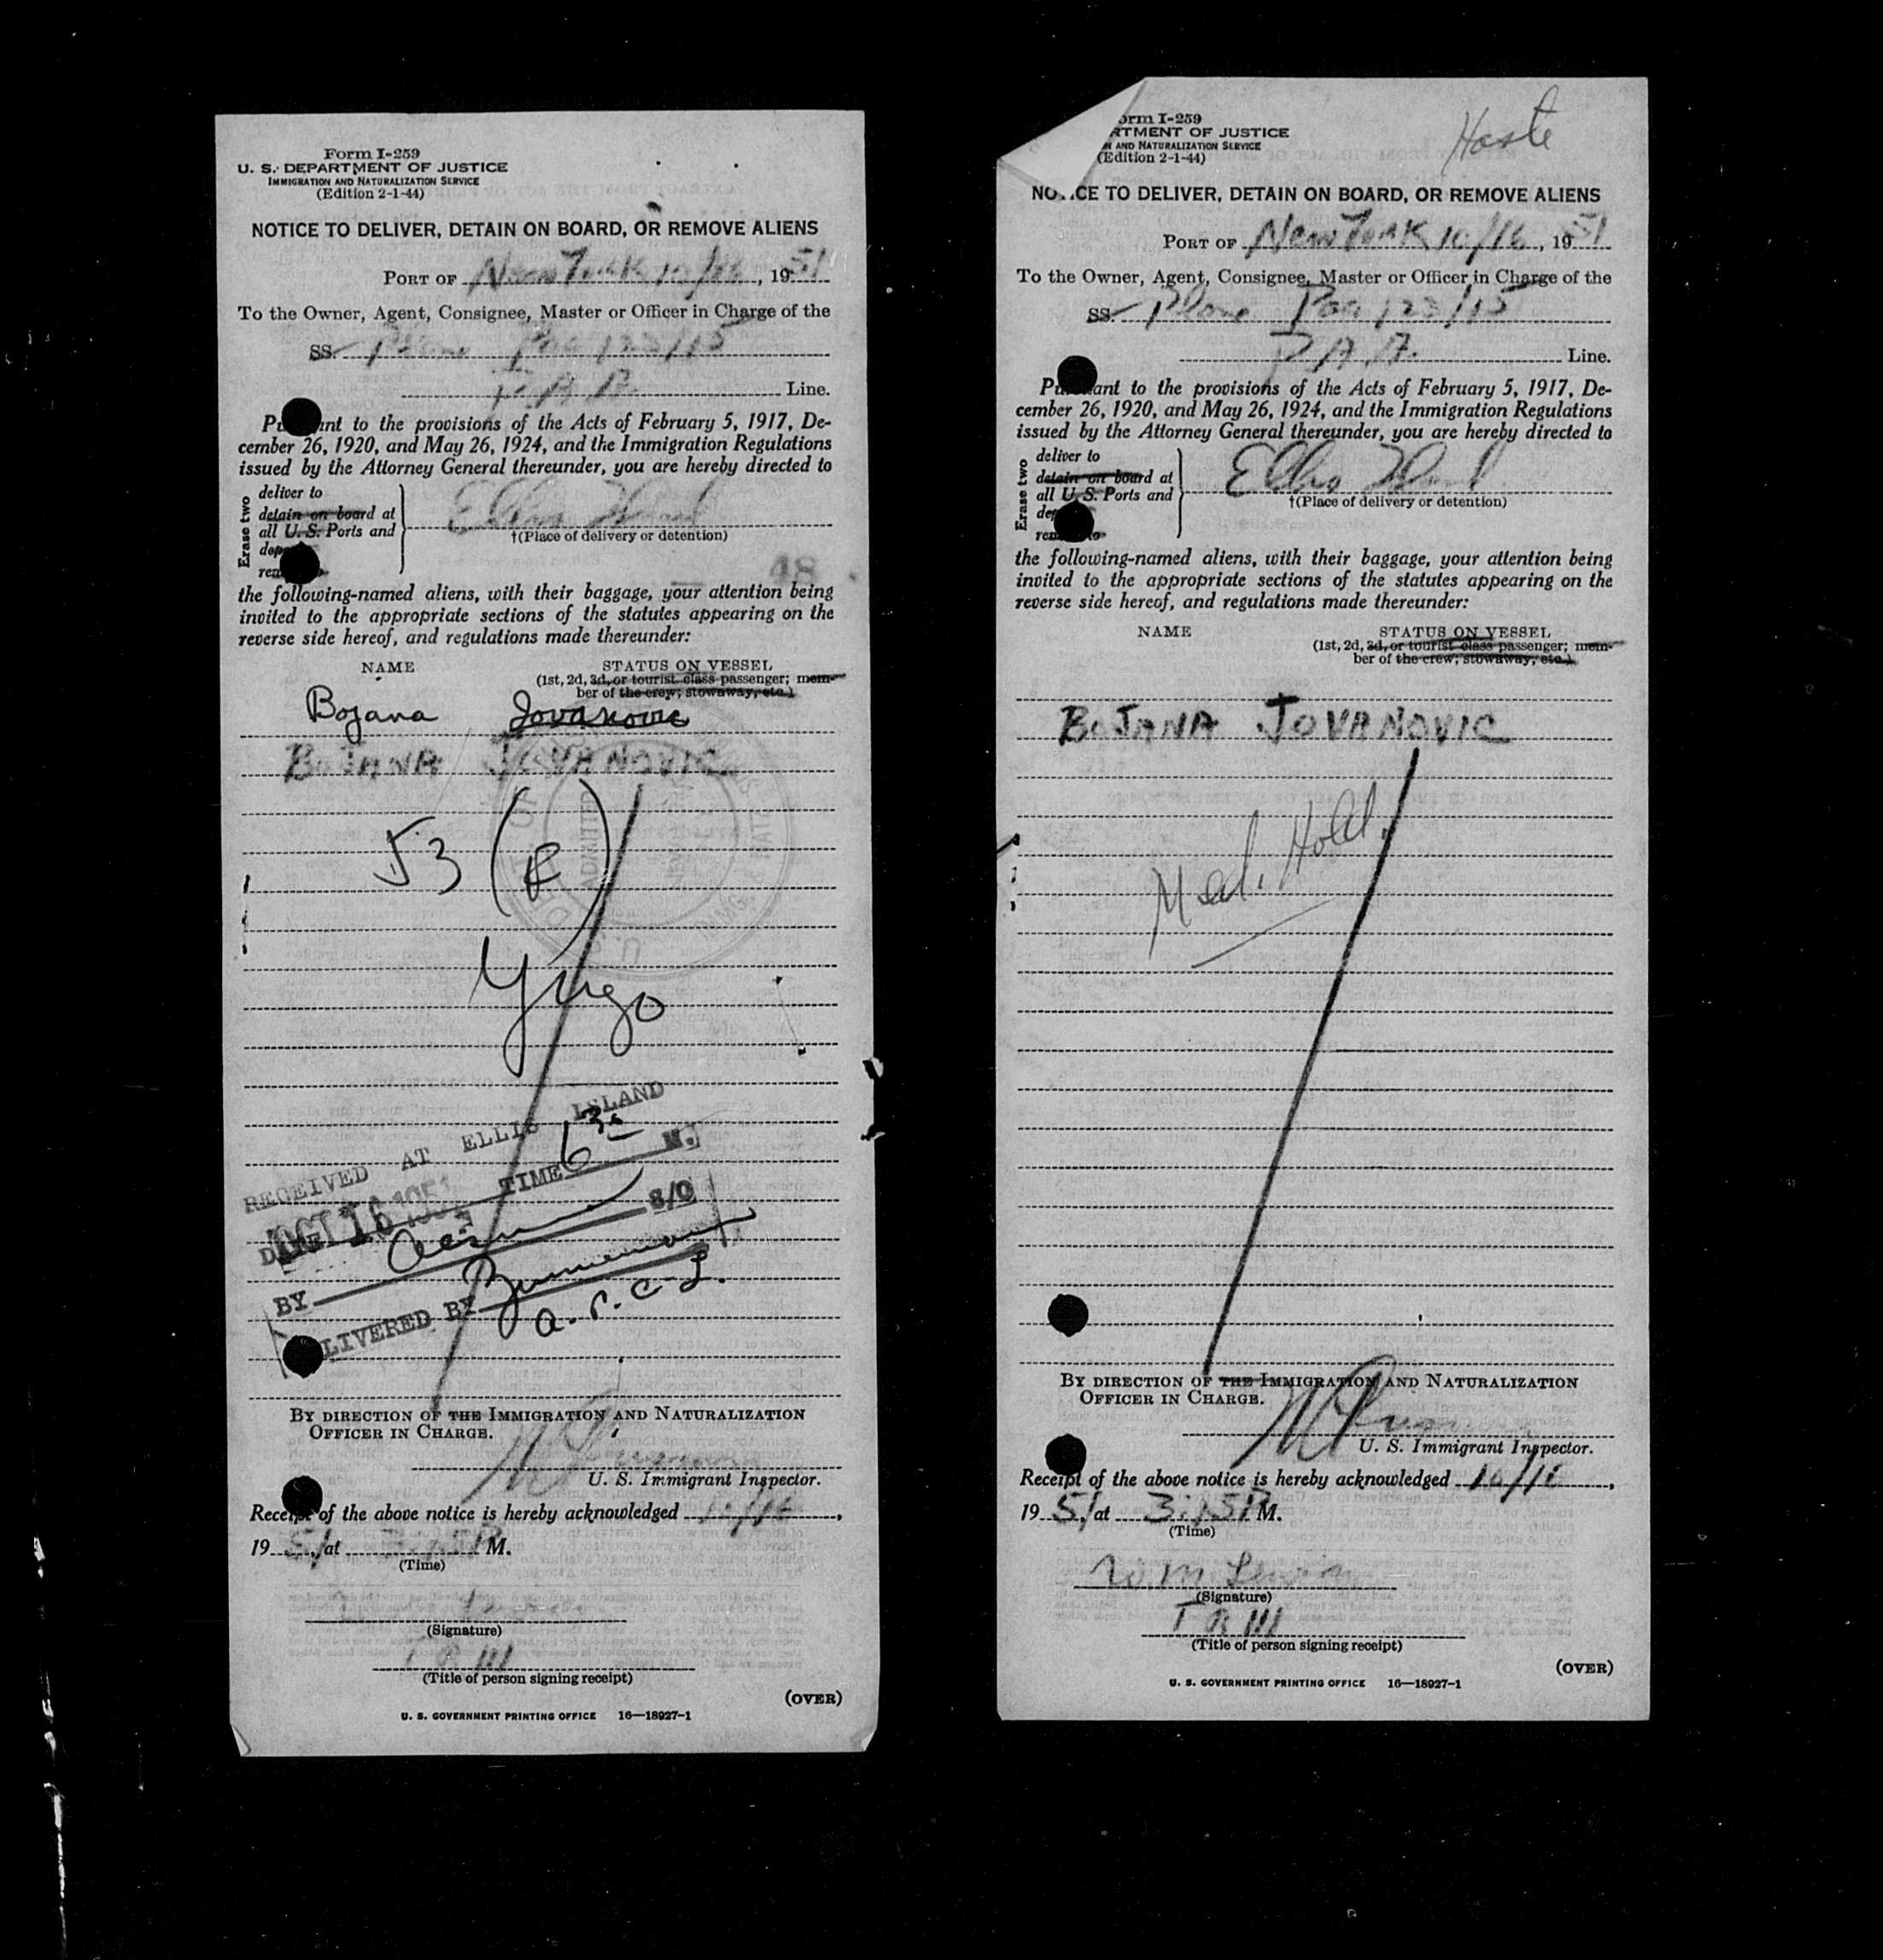 Form I-259
U. S. DEPARTMENT OF JUSTICE
IMMIGRATION AND NATURALIZATION SERVICE
(Edition 2-1-44)
NOTICE TO DELIVER, DETAIN ON BOARD, OR REMOVE ALIENS
PORT OF New York 10/16, 1951
To the Owner, Agent, Consignee, Master or Officer in Charge of the
SS. Plane Paa 123/15
P.A.A. Line.
Pursuant to the provisions of the Acts of February 5, 1917, De-
cember 26, 1920, and May 26, 1924, and the Immigration Regulations
issued by the Attorney General thereunder, you are hereby directed to
Erase two
deliver to
detain on board at
all U. S. Ports and
Ellis Island
†(Place of delivery or detention)
48
the following-named aliens, with their baggage, your attention being
invited to the appropriate sections of the statutes appearing on the
reverse side hereof, and regulations made thereunder:
NAME STATUS ON VESSEL
(1st, 2d, 3d, or tourist class passenger; mem-
ber of the crew; stowaway, etc.)
Bojana Jovanovic
BOJANA JOVANOVIC
53 (R)
Yugo
RECEIVED AT ELLIS ISLAND
DATE OCT 16 1951 TIME 6 30 M.
BY S/O
DELIVERED BY
BY DIRECTION OF THE IMMIGRATION AND NATURALIZATION
OFFICER IN CHARGE.
U. S. Immigrant Inspector.
Receipt of the above notice is hereby acknowledged 10/16,
1951 at 3:15P M.
(Time)
(Signature)
(Title of person signing receipt)
(OVER)
U. S. GOVERNMENT PRINTING OFFICE 16—18927-1
Haste
orm I-259
RTMENT OF JUSTICE
N AND NATURALIZATION SERVICE
(Edition 2-1-44)
NOTICE TO DELIVER, DETAIN ON BOARD, OR REMOVE ALIENS
PORT OF New York 10/16, 1951
To the Owner, Agent, Consignee, Master or Officer in Charge of the
SS. Plane Paa 123/15
P.A.A. Line.
Pursuant to the provisions of the Acts of February 5, 1917, De-
cember 26, 1920, and May 26, 1924, and the Immigration Regulations
issued by the Attorney General thereunder, you are hereby directed to
Erase two
deliver to
detain on board at
all U. S. Ports and
Ellis Island
†(Place of delivery or detention)
the following-named aliens, with their baggage, your attention being
invited to the appropriate sections of the statutes appearing on the
reverse side hereof, and regulations made thereunder:
NAME STATUS ON VESSEL
(1st, 2d, 3d, or tourist class passenger; mem-
ber of the crew; stowaway, etc.)
BOJANA JOVANOVIC
Med. Hold.
BY DIRECTION OF THE IMMIGRATION AND NATURALIZATION
OFFICER IN CHARGE.
U. S. Immigrant Inspector.
Receipt of the above notice is hereby acknowledged 10/16,
1951 at 3:15P M.
(Time)
(Signature)
(Title of person signing receipt)
(OVER)
U. S. GOVERNMENT PRINTING OFFICE 16—18927-1